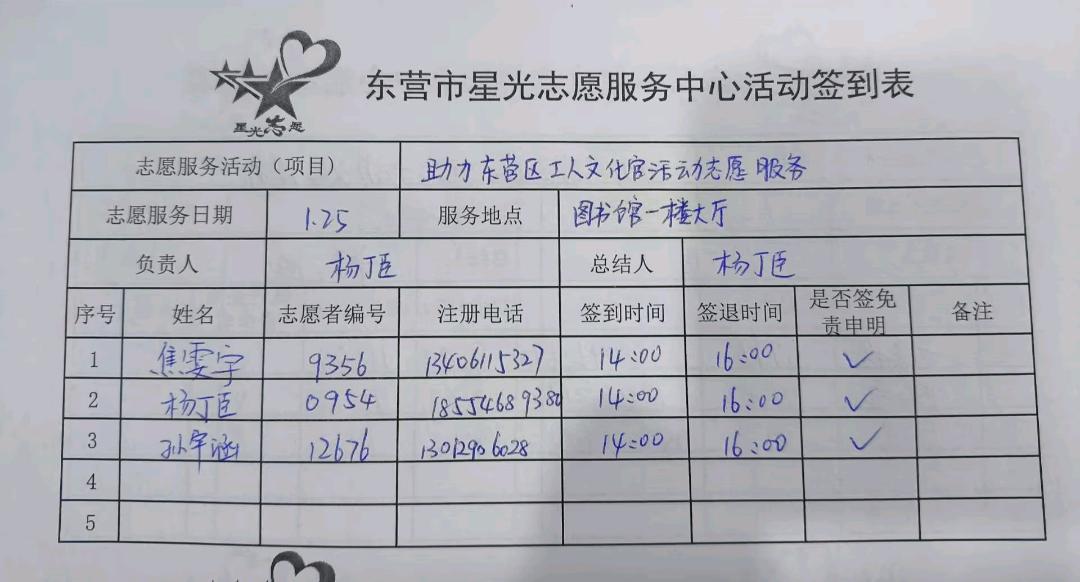 星光志愿
东营市星光志愿服务中心活动签到表
志愿服务活动（项目） 助力东营区工人文化宫活动志愿服务
志愿服务日期 1.25 服务地点 图书馆一楼大厅
负责人 杨丁臣 总结人 杨丁臣
序号 姓名 志愿者编号 注册电话 签到时间 签退时间 是否签免责申明 备注
1 焦雯宇 9356 13406115327 14:00 16:00 ✓
2 杨丁臣 0954 18554689380 14:00 16:00 ✓
3 孙宇涵 12676 13012906028 14:00 16:00 ✓
4
5